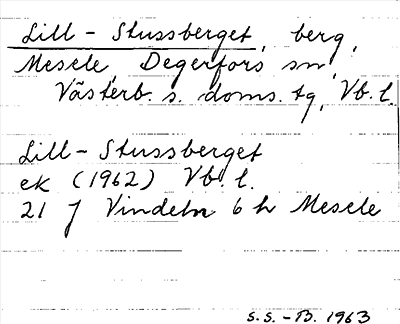 Lill-Stussberget, berg,
Mesele, Degerfors sn,
Västerb. s. doms. tg, Vb. l.
Lill-Stussberget
ek (1962) Vb. l.
21 J Vindeln 6 h Mesele
S.S.-B. 1963